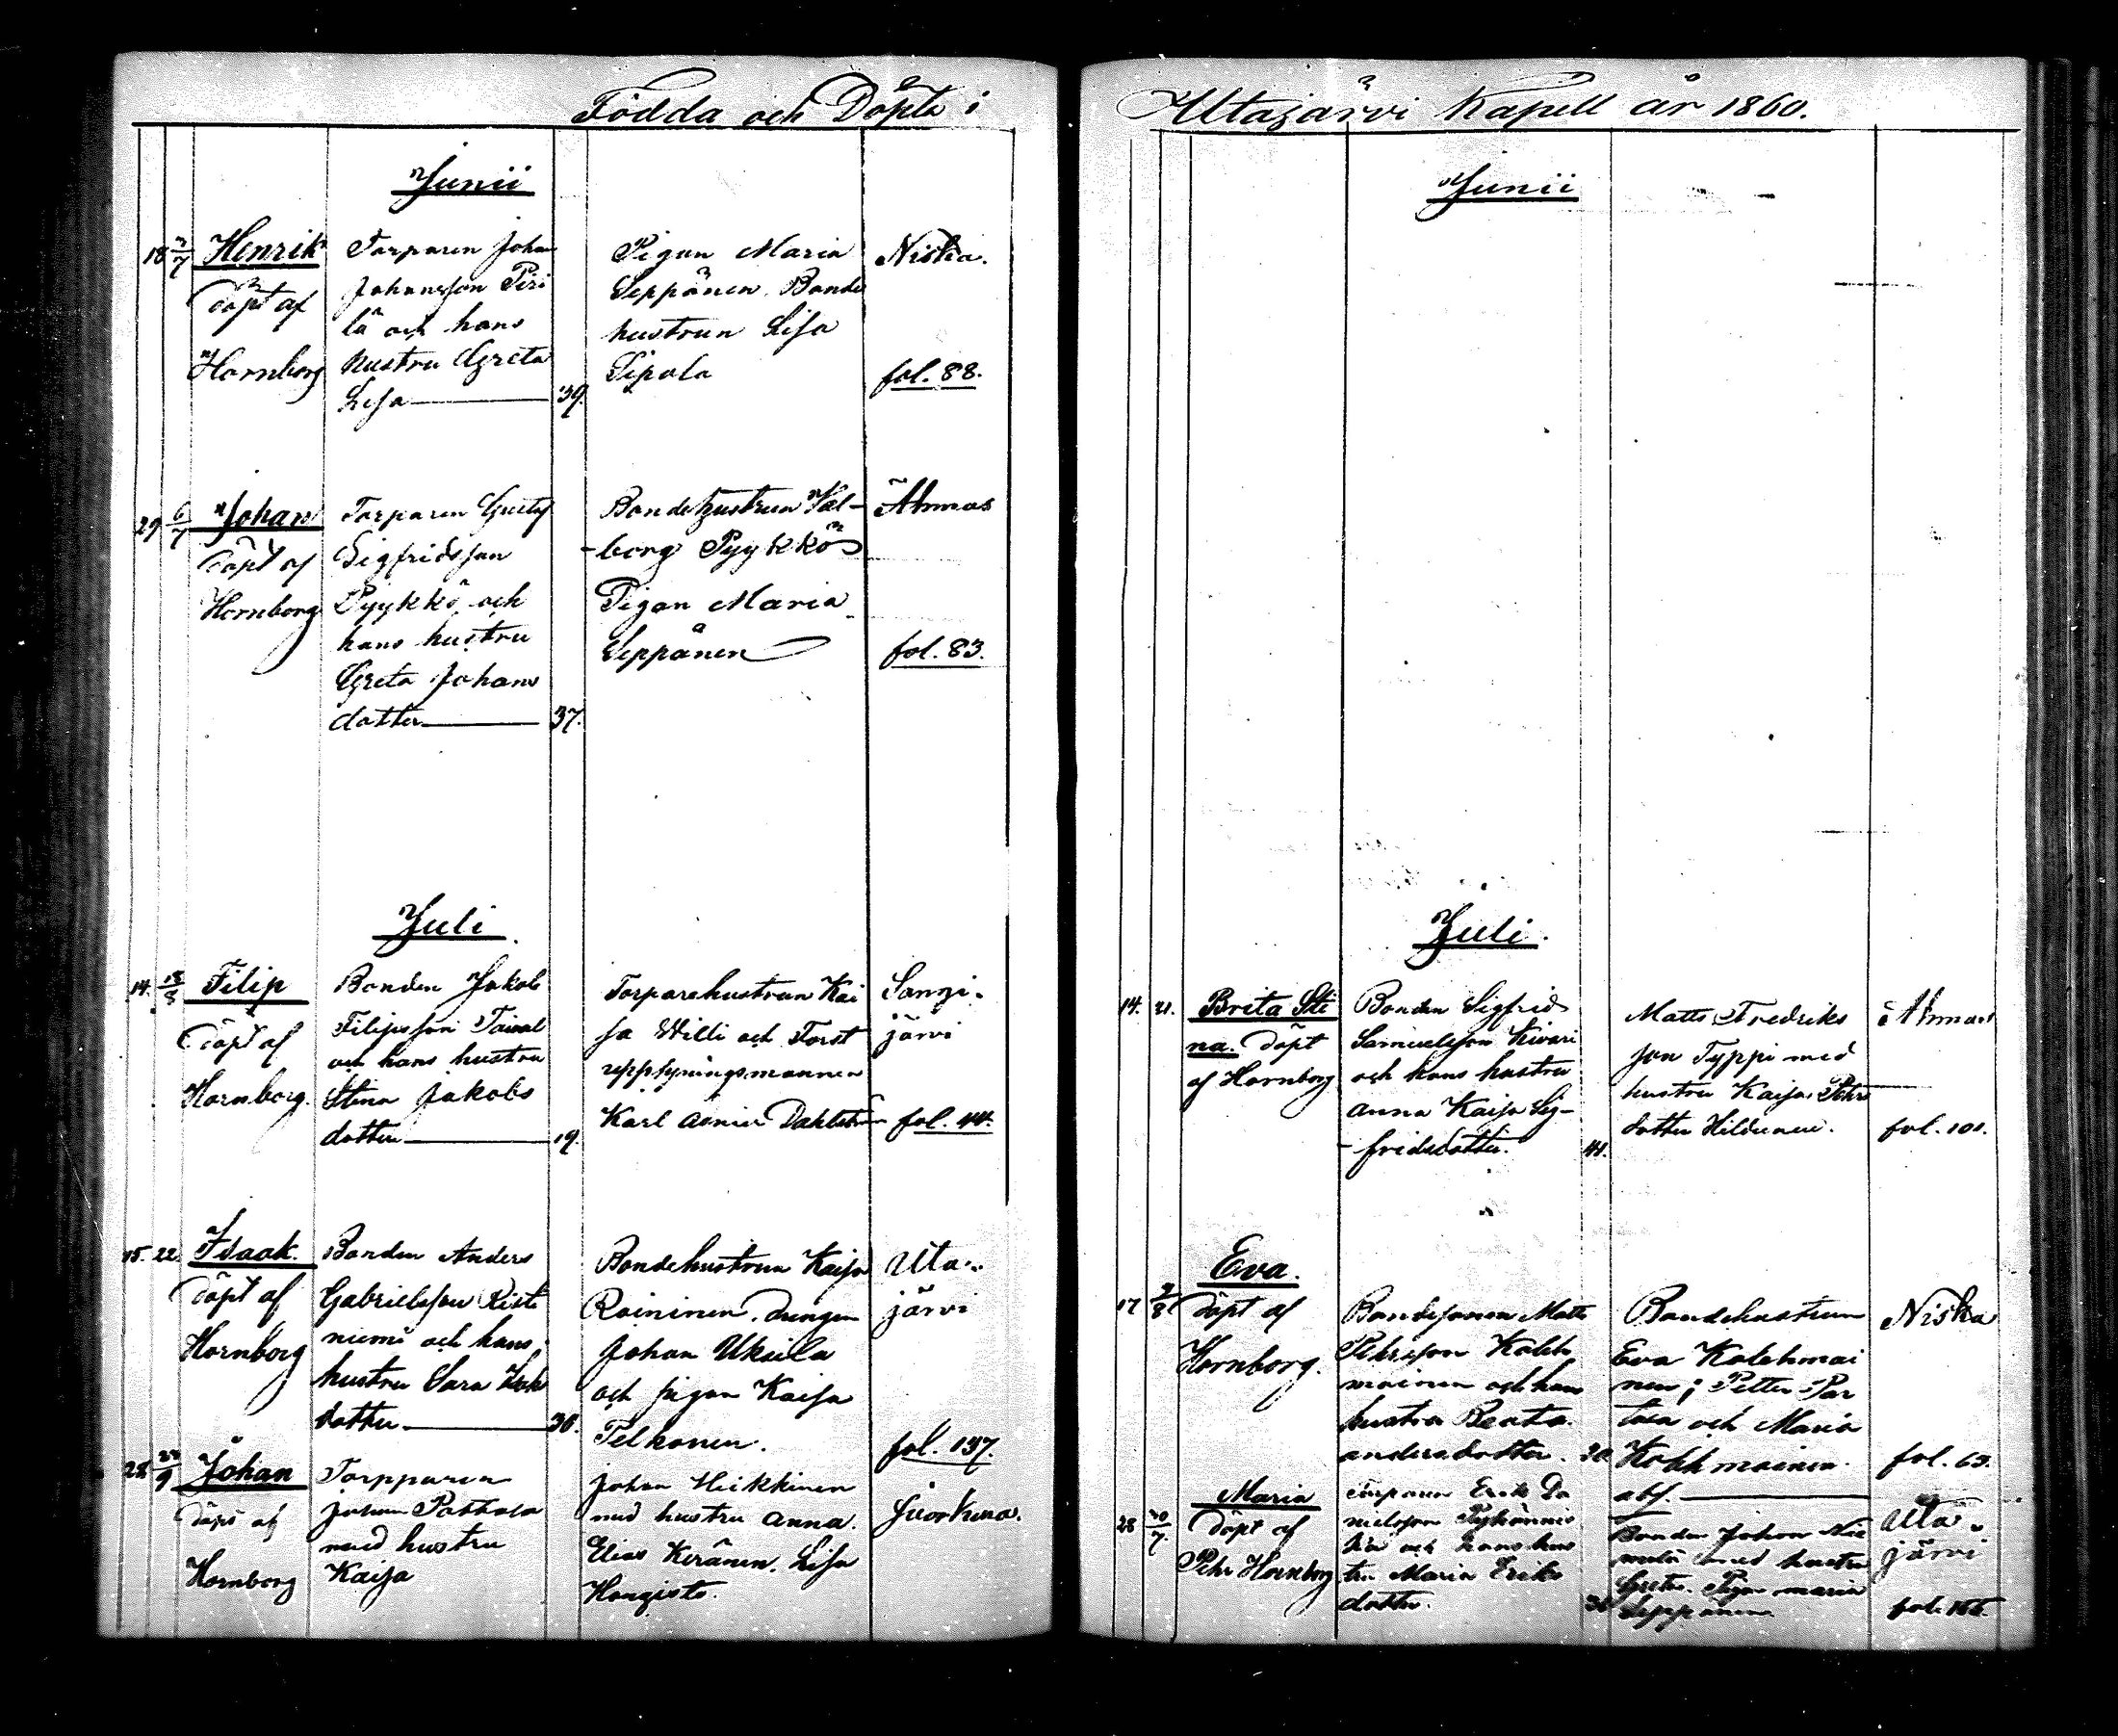 Födda och Döpte i
Junii
18 2/7 Henrik
döpt af
Hornborg
Torparen Johan
Johansson Piri
lä och hans
hustru Greta
Lisa — 39.
Pigan Maria
Seppänen. Bonde
hustrun Lisa
Sipola
Niska.
fol. 88.
29 6/7 Johan
döpt af
Hornborg
Torparen Gustaf
Sigfridsson
Pyykkö och
hans hustru
Greta Johans
dotter — 37.
Bondehustrun Val-
-borg Pyykkö
Pigan Maria
Seppänen
Ahmas
fol. 83.
Juli
14. 18/8 Filip
döpt af
Hornborg.
Bonden Jakob
Filipsson Taival
och hans hustru
Stina Jakobs
dotter — 19.
Torparehustrun Kai
sa Willi och Forst
uppsyningsmannen
Karl Dahlström
Sangi-
järvi
fol. 44.
15. 22 Isaak.
döpt af
Hornborg
Bonden Anders
Gabrielsson Riste
niemi och hans
hustru Sara Isaks
dotter — 30.
Bondehustrun Kaisa
Roininen. drengen
Johan Uksila
och pigan Kaisa
Pelkonen.
Uta-
järvi
fol. 137.
28 /9 Johan
döpt af
Hornborg
Torpparen
Johan
med hustru
Kaisa
Johan Heikkinen
med hustru Anna.
Elias Keränen. Lisa
Hongisto.
Juorkuna.
Utajärvi Kapell år 1860.
Junii
Juli.
14. 21. Brita Sti
na. döpt
af Hornborg
Bonden Sigfrid
Samuelsson Kivari
och hans hustru
Anna Kaisa Sig-
-fridsdotter. 41.
Matts Fredriks
son Typpi med
hustru Kaisa Pehrs
dotter Hildunen.
Ahmas
fol. 101.
Eva.
17 /8 döpt af
Hornborg.
Bondesonen Matts
Pehrsson Koleh
mainen och hans
hustru Beata
Andersdotter. 20
Bondehustrun
Eva Kolehmai
nen; Petter Par
tasa och Maria
Kolehmainen.
Niska
fol. 63.
Maria
28 30/7 döpt af
Pehr Hornborg
Torparen Erik Da
nielsson
och hans hus
tru Maria Eriks
dotter.
Bonden Johan Nie
melä med hustru
Greta. Pigan Maria
Seppänen
Uta-
järvi